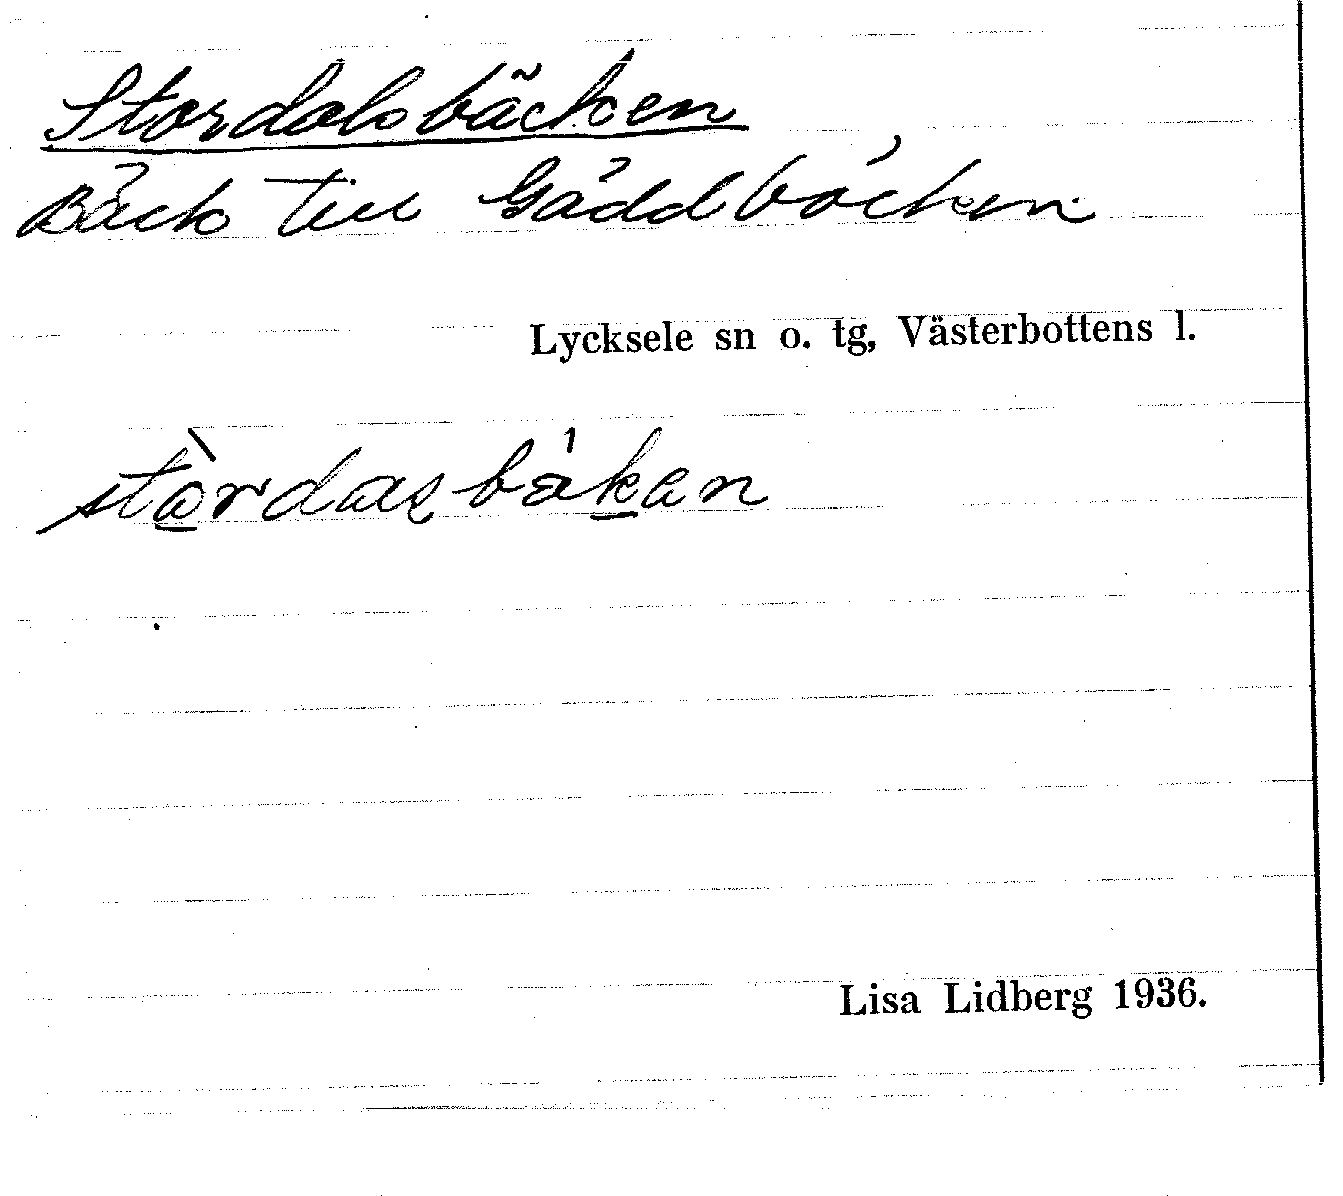 Stordalsbäcken
Bäck till Gäddbäcken
Lycksele sn o. tg, Västerbottens l.
Lisa Lidberg 1936.